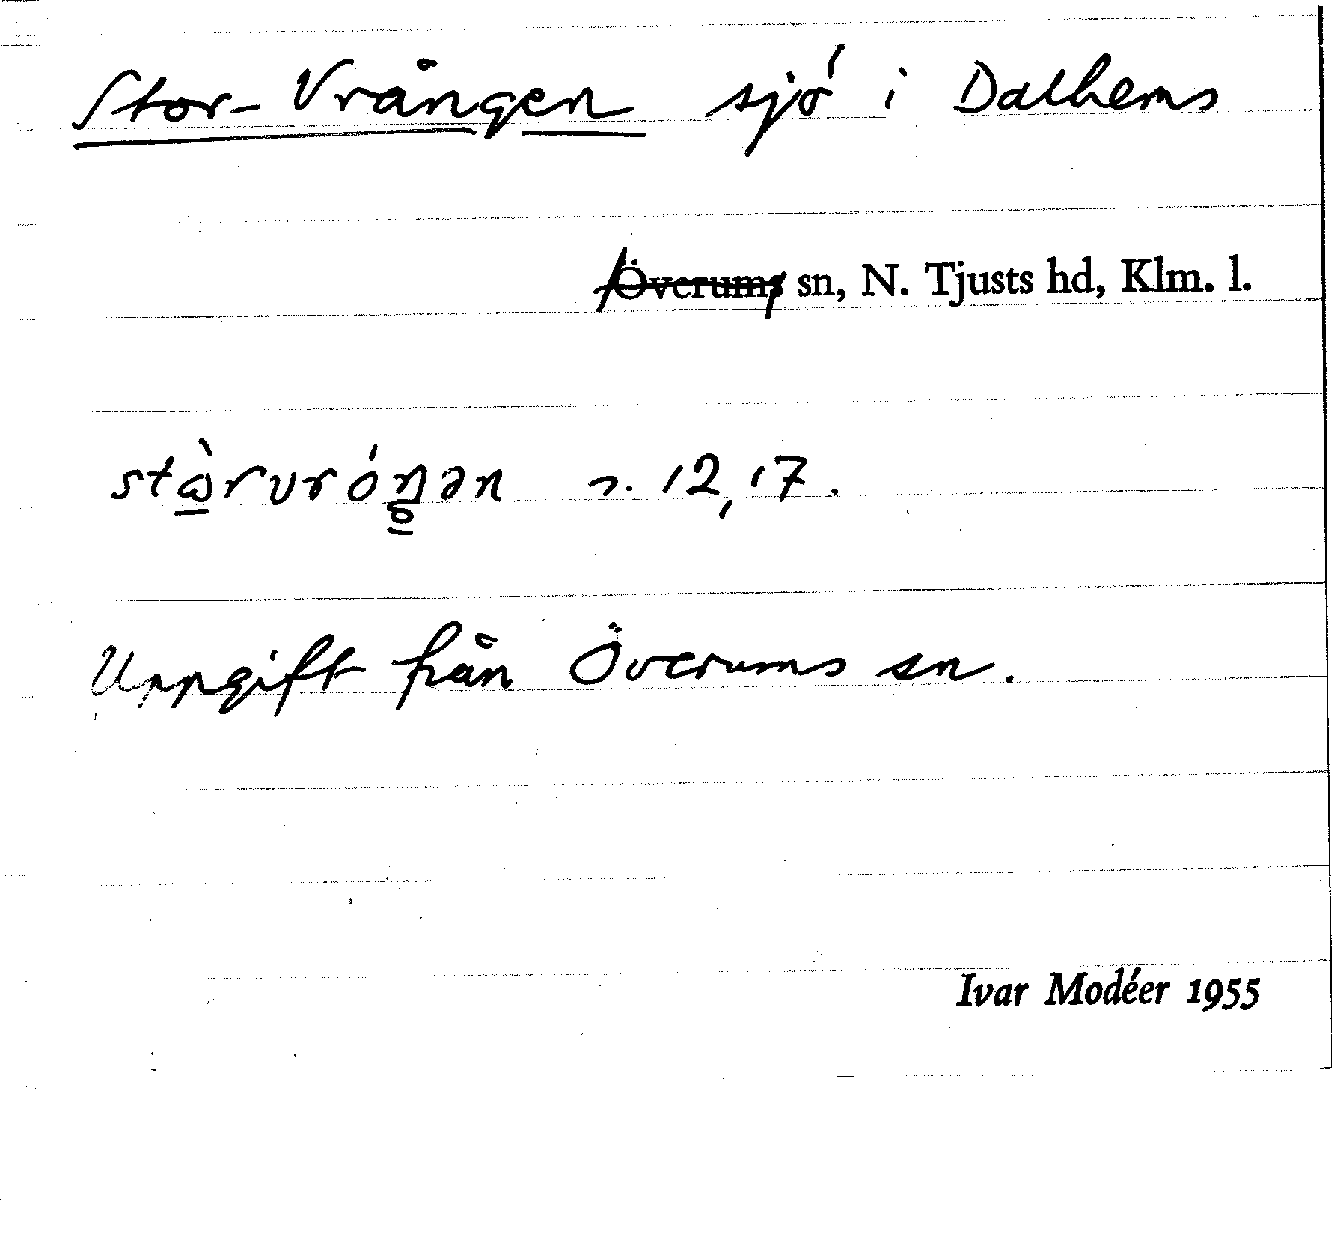 Stor-Vrången sjö i Dalhems
Överums sn, N. Tjusts hd, Klm. l.
12,17.
Uppgift från Överums sn.
Ivar Modéer 1955